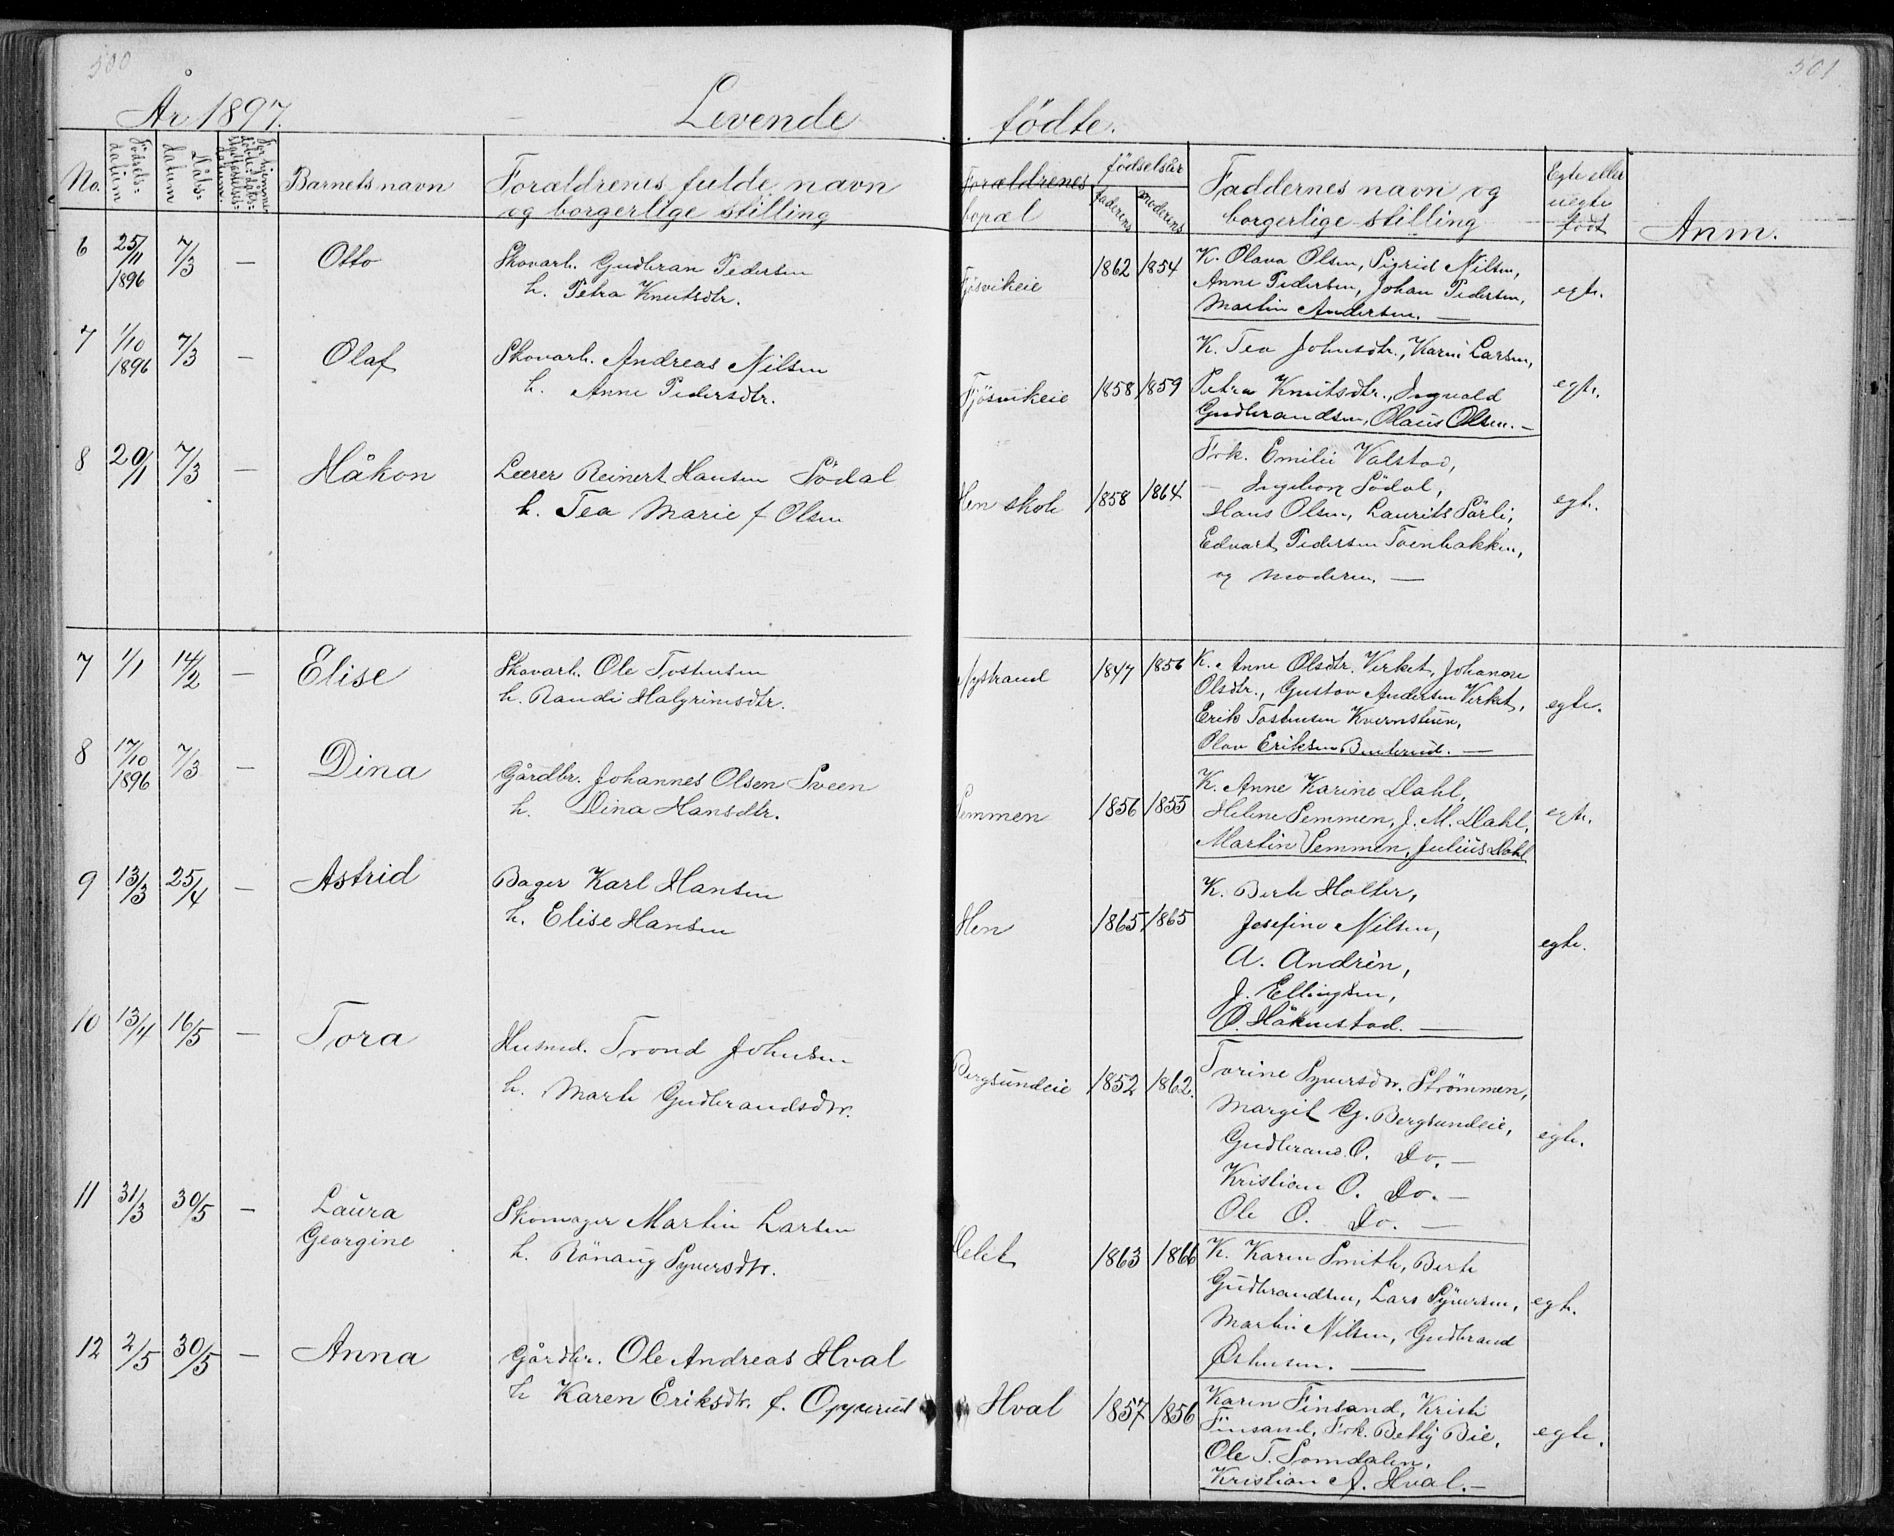 500
501
År 1897.
Levende fødte.
No. Fødsels-datum Dåbs-datum Barnets navn Forældrenes fulde navn og borgerlige stilling Forældrenes bopæl fødselsår faderens moderens Faddernes navn og borgerlige stilling Egte eller uegte født Anm.
6 25/11 1896 7/3 — Otto
Skovarb. Gudbran Pedersen
h. Petra Knutsdtr.
1862 1854
K. Olava Olsen, Sigrid Nilsen,
Anne Pedersen, Johan Pedersen,
Martin Andersen. —
egte.
7 1/10 1896 7/3 — Olaf
Skovarb. Andreas Nilsen
h. Anne Pedersdtr.
Fjösvikeie 1858 1859
K. Tea Johnsdtr., Kari Larsen,
Petra Knutsdtr., Ingvald
Gudbrandsen, Olaus Olsen. —
egte.
8 20/1 7/3 — Håkon
Lærer Reinert Hansen Södal
h. Tea Marie f Olsen
Hen skole 1858 1864
Frk. Emilie Valstad,
— Ingeborg Södal,
Hans Olsen, Laurits Sörli,
Edvart Pedersen
og moderen —
egte.
7 1/1 14/2 — Elise
Skovarb. Ole Tostensen
h. Randi Halgrimsdtr.
1847 1856
K. Anne Olsdtr. Verket, Johanne
Olsdtr., Gustav Andersen Verket,
Erik Tostensen Kvernstuen,
Olav Eriksen —
egte.
8 17/10 1896 7/3 — Dina
Gårdbr. Johannes Olsen Sveen
h. Dina Hansdtr.
Semmen 1856 1855
K. Anne Karine Dahl,
Helene Semmen, J. M. Dahl,
Martin Semmen, Julius Dahl
egte.
9 13/3 25/4 — Astrid
Bager Karl Hansen
h. Elise Hansen
Hen 1865 1865
K. Berte Holter,
Josefine Nilsen,
A. Andrèn,
J. Ellingsen,
O. Håkenstad. —
egte.
10 13/4 16/5 — Tora
Husmd. Trond Johnsen
h. Marte Gudbrandsdtr.
Bergsundeie 1852 1862.
Torine Syversdtr. Strømmen,
Margit G. Bergsundeie,
Gudbrand O. Do. —
Kristian O. Do. —
Ole O. Do. —
egte.
11 31/3 30/5 — Laura
Georgine
Skomager Martin Larsen
h. Rönaug Syversdtr.
1863 1866
K. Karen Smith, Berte
Gudbrandsen, Lars Syversen,
Martin Nilsen, Gudbrand
Östensen. —
egte.
12 2/5 30/5 — Anna
Gårdbr. Ole Andreas Hval
h Karen Eriksdtr. f. Opperud
Hval 1857 1856
Karen Finsand, Kristi
Finsand, Frk. Betty Bie,
Ole T. Somdalen,
Kristian A. Hval. —
egte.